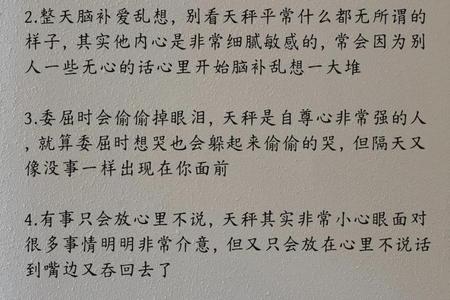 2.整天脑补爱乱想，别看天秤平常什么都无所谓的
样子，其实他内心是非常细腻敏感的，常会因为别
人一些无心的话心里开始脑补乱想一大堆
3.委屈时会偷偷掉眼泪，天秤是自尊心非常强的人
，就算委屈时想哭也会躲起来偷偷的哭，但隔天又
像没事一样出现在你面前
4.有事只会放心里不说，天秤其实非常小心眼面对
很多事情明明非常介意，但又只会放在心里不说话
到嘴边又吞回去了